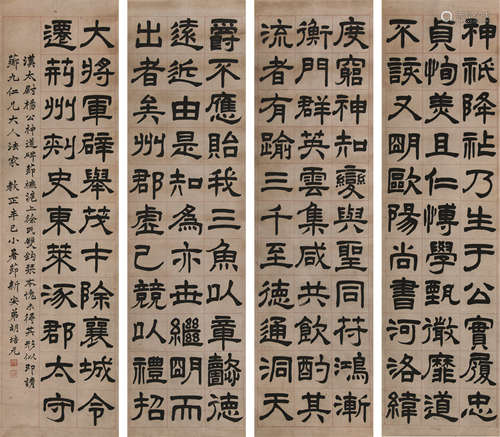 神祇降祉乃生于公實履忠
貞恂美且仁博學甄微靡道
不該又明歐陽尚書河洛緯
度窮神知變與聖同苻鴻漸
衡門群英雲集咸共飲酌其
流者有踰三千至德通洞天
爵不應貽我三魚以章懿德
遠近由是知為亦世繼明而
出者矣州郡虛己競以禮招
大將軍辟舉茂才除襄城令
遷荊州刺史東萊涿郡太守
漢太尉楊公神道碑節橅滬上徐氏雙鈎栞本愧未得其形似即請
蘅九仁兄大人法家 教正辛巳小暑節新安弟胡培元